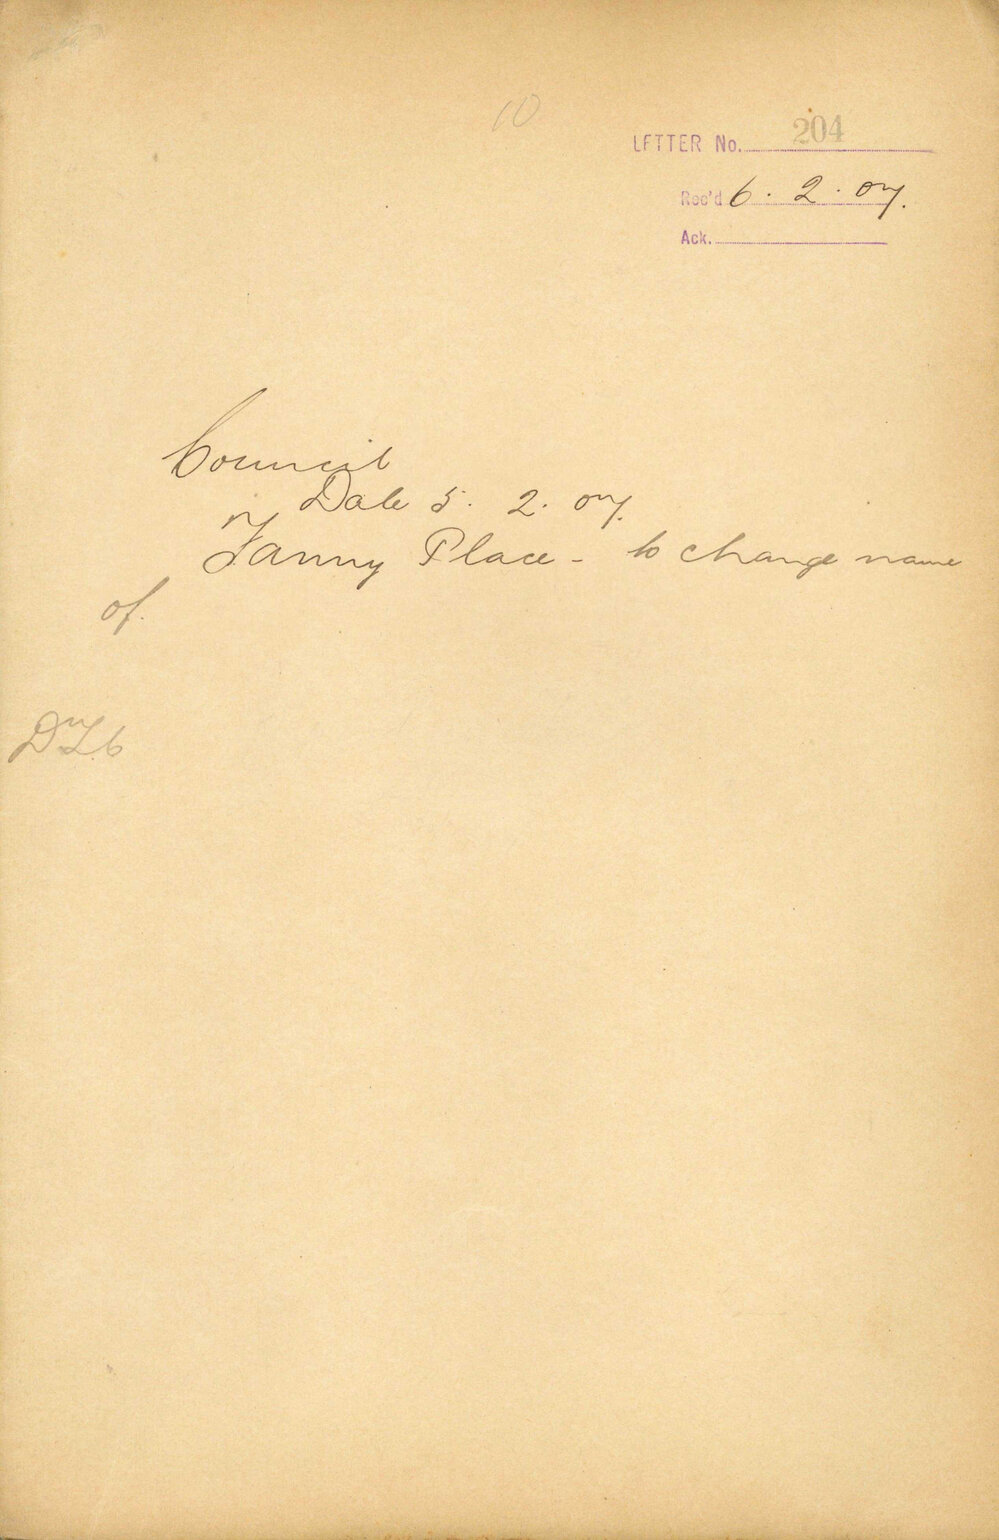 10
LETTER No. 204
Rec'd 6. 2. 07.
Ack.
Council
Date 5. 2. 07.
Fanny Place - to change name
of.